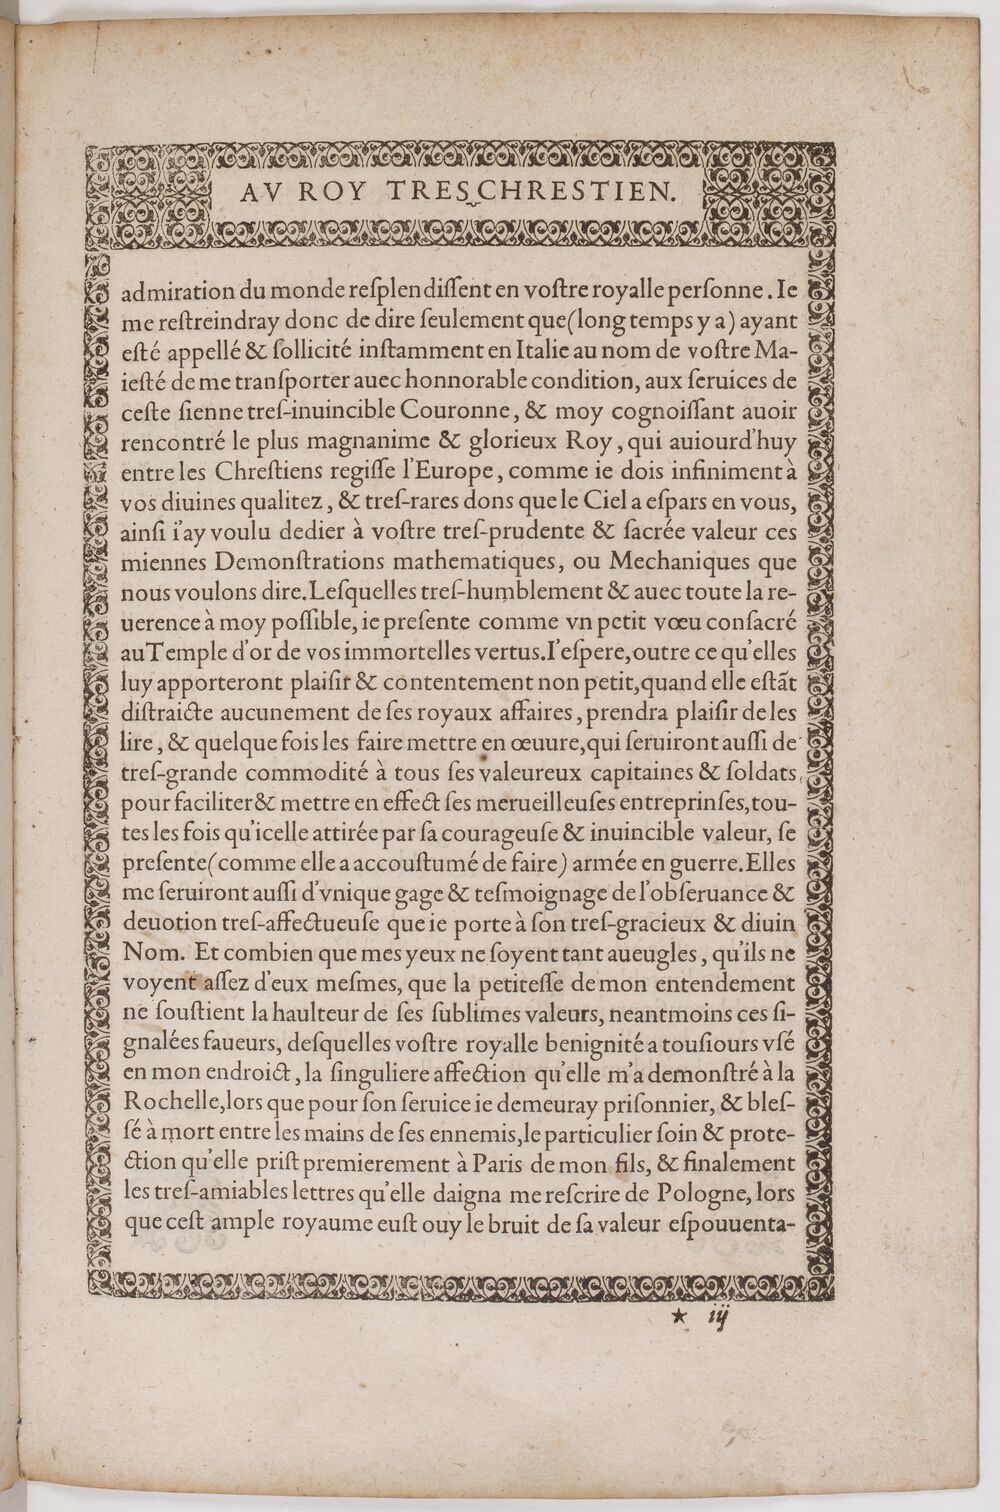 AV ROY TRES CHRESTIEN.
admiration du monde reſplendiſſent en voſtre royalle perſonne. Ie
me reſtreindray donc de dire ſeulement que (long temps y a) ayant
eſté appellé & ſollicité inſtamment en Italie au nom de voſtre Ma-
ieſté de me tranſporter auec honnorable condition, aux ſeruices de
ceſte ſienne treſ-inuincible Couronne, & moy cognoiſſant auoir
rencontré le plus magnanime & glorieux Roy, qui auiourd'huy
entre les Chreſtiens regiſſe l'Europe, comme ie dois infiniment à
vos diuines qualitez, & treſ-rares dons que le Ciel a eſpars en vous,
ainſi i'ay voulu dedier à voſtre treſ-prudente & ſacrée valeur ces
miennes Demonſtrations mathematiques, ou Mechaniques que
nous voulons dire. Leſquelles treſ-humblement & auec toute la re-
uerence à moy poſſible, ie preſente comme vn petit vœu conſacré
au Temple d'or de vos immortelles vertus. I'eſpere, outre ce qu'elles
luy apporteront plaiſir & contentement non petit, quand elle eſtãt
diſtraicte aucunement de ſes royaux affaires, prendra plaiſir de les
lire, & quelque fois les faire mettre en œuure, qui ſeruiront auſſi de
treſ-grande commodité à tous ſes valeureux capitaines & ſoldats,
pour faciliter & mettre en effect ſes merueilleuſes entreprinſes, tou-
tes les fois qu'icelle attirée par ſa courageuſe & inuincible valeur, ſe
preſente (comme elle a accouſtumé de faire) armée en guerre. Elles
me ſeruiront auſſi d'vnique gage & teſmoignage de l'obſeruance &
deuotion treſ-affectueuſe que ie porte à ſon treſ-gracieux & diuin
Nom. Et combien que mes yeux ne ſoyent tant aueugles, qu'ils ne
voyent aſſez d'eux meſmes, que la petiteſſe de mon entendement
ne ſouſtient la haulteur de ſes ſublimes valeurs, neantmoins ces ſi-
gnalées faueurs, deſquelles voſtre royalle benignité a touſiours vſé
en mon endroict, la ſinguliere affection qu'elle m'a demonſtré à la
Rochelle, lors que pour ſon ſeruice ie demeuray priſonnier, & bleſ-
ſé à mort entre les mains de ſes ennemis, le particulier ſoin & prote-
ction qu'elle priſt premierement à Paris de mon fils, & finalement
les treſ-amiables lettres qu'elle daigna me reſcrire de Pologne, lors
que ceſt ample royaume euſt ouy le bruit de ſa valeur eſpouuenta-
★ iij